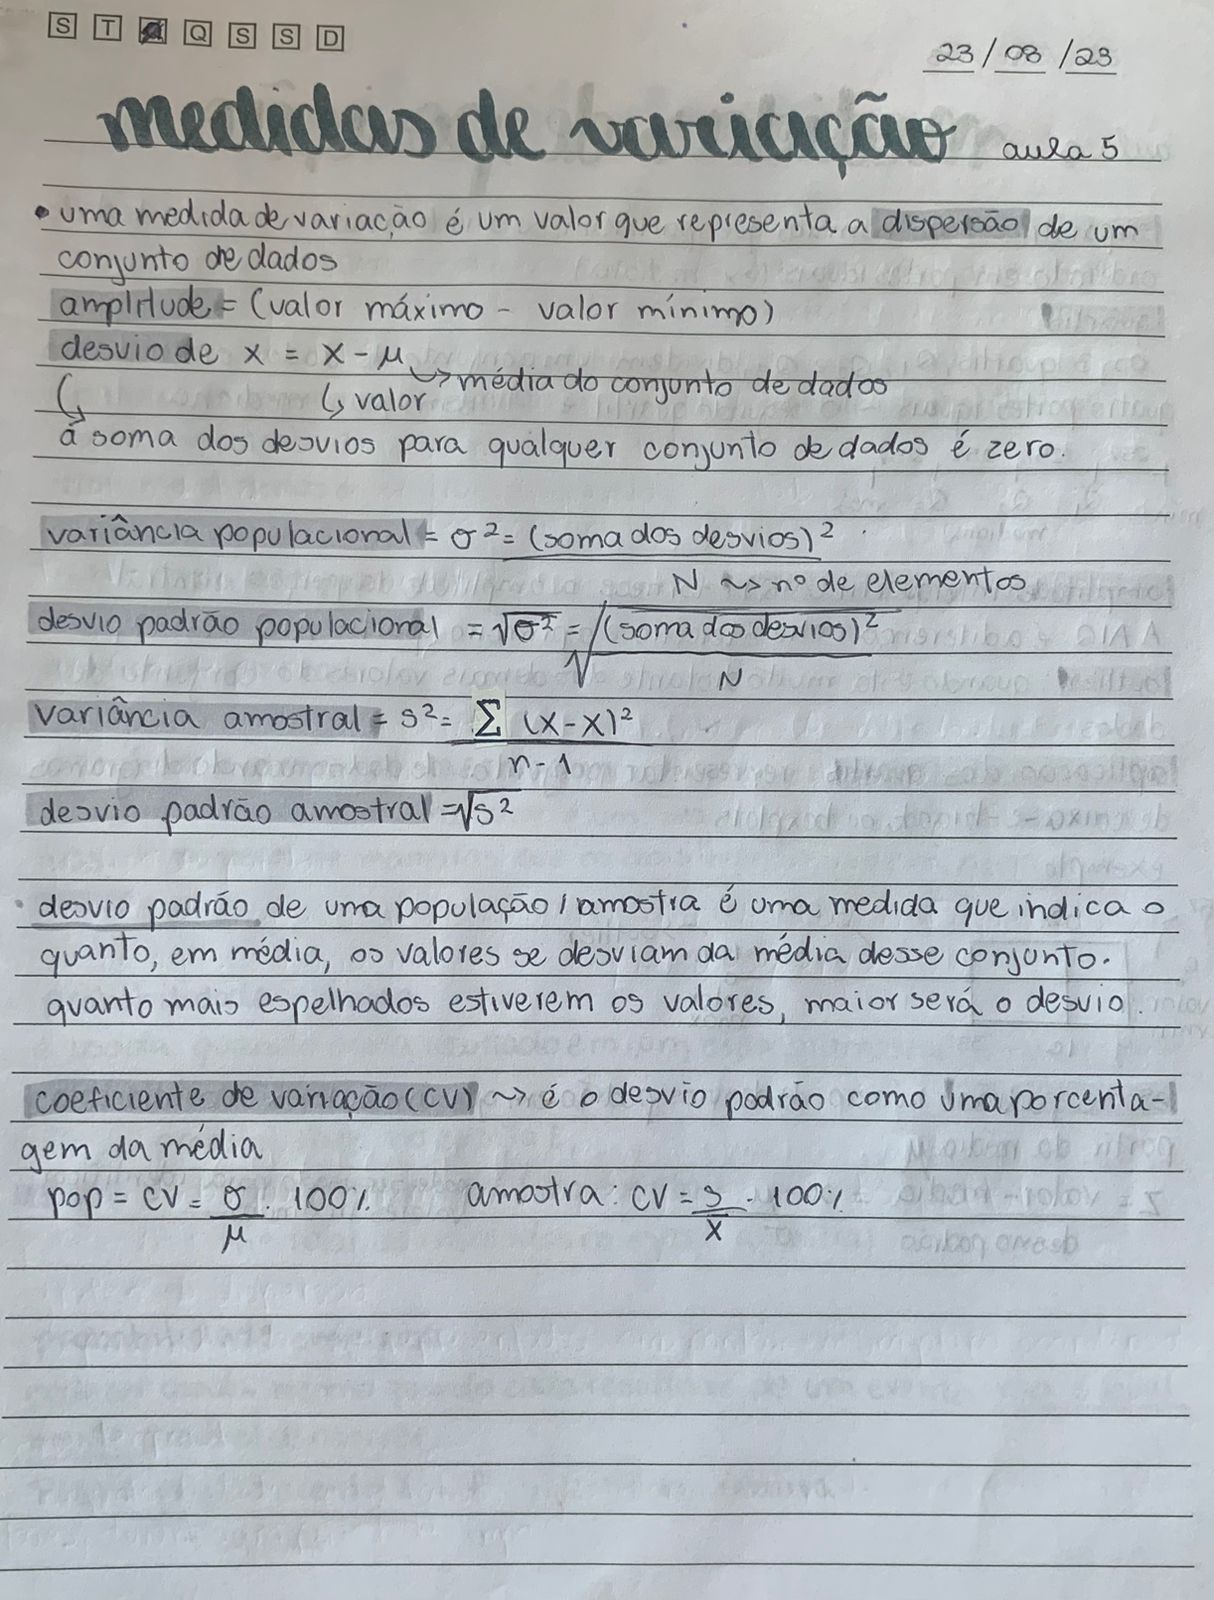 S T Q S S D
23/08/23
medidas de variação aula 5
• uma medida de variação é um valor que representa a dispersão de um
conjunto de dados
amplitude = (valor máximo - valor mínimo)
desvio de x = x - μ
↳ média do conjunto de dados
↳ valor
a soma dos desvios para qualquer conjunto de dados é zero.
variância populacional = σ² = (soma dos desvios)²
N ~> nº de elementos
desvio padrão populacional = √σ² = √(soma dos desvios)²
N
variância amostral = s² = Σ (x-x)²
n-1
desvio padrão amostral = √s²
• desvio padrão de uma população/amostra é uma medida que indica o
quanto, em média, os valores se desviam da média desse conjunto.
quanto mais espelhados estiverem os valores, maior será o desvio.
coeficiente de variação (CV) ~> é o desvio padrão como uma porcenta-
gem da média
pop = CV = σ . 100% amostra: CV = s . 100%
μ x̅